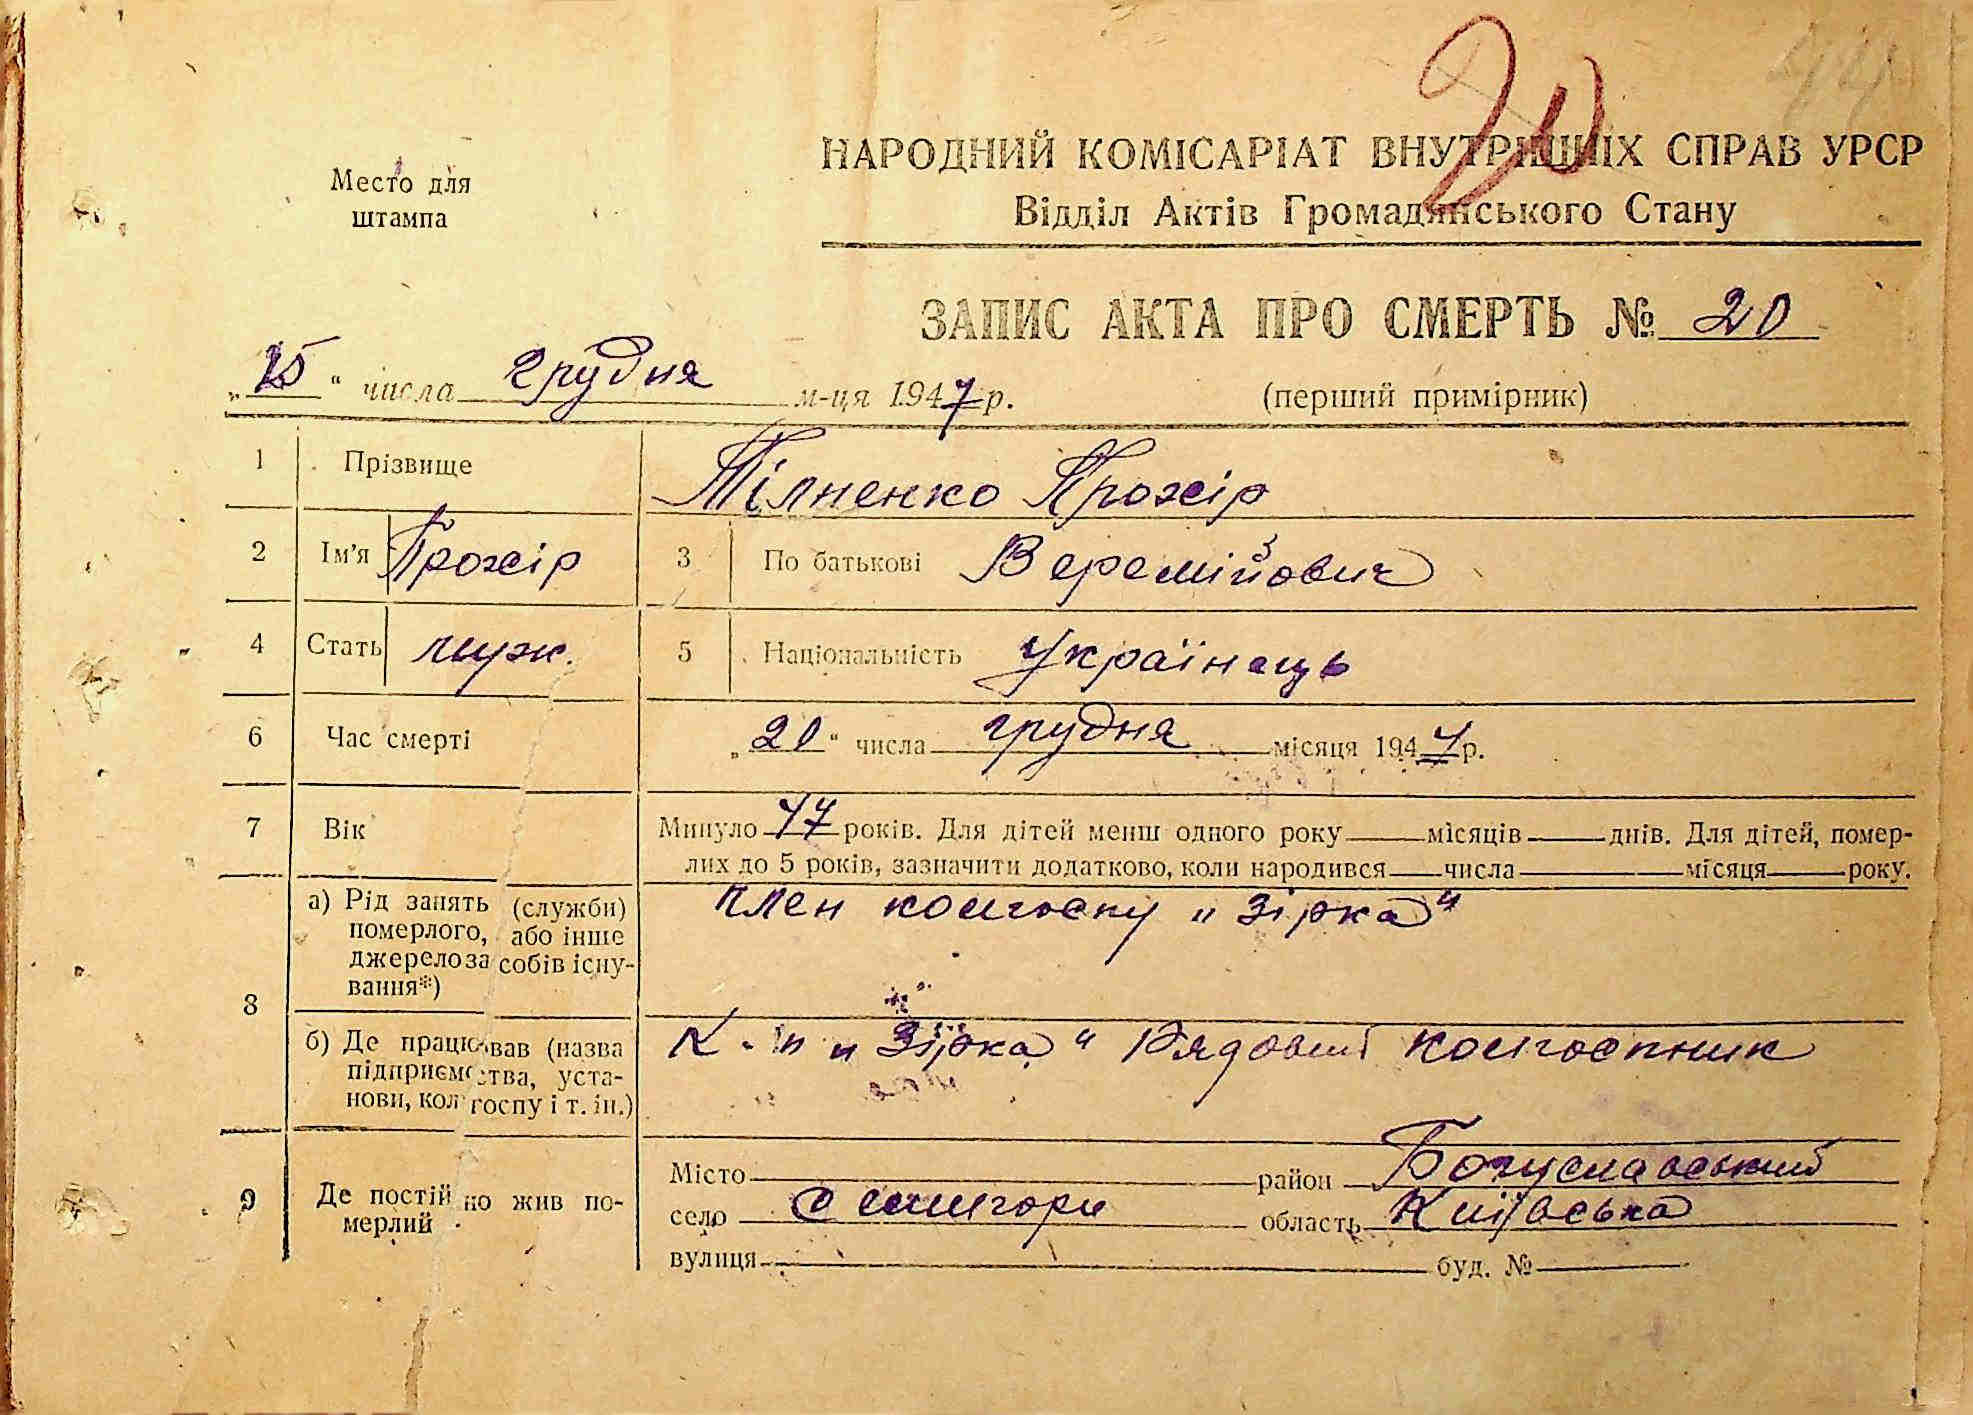 20
НАРОДНИЙ КОМІСАРІАТ ВНУТРІШНІХ СПРАВ УРСР
Место для
штампа
Відділ Актів Громадянського Стану
ЗАПИС АКТА ПРО СМЕРТЬ № 20
„15“ числа грудня м-ця 1947 р. (перший примірник)
1 Прізвище Тілненко Прохір
2 Ім'я Прохір 3 По батькові Веремійович
4 Стать муж. 5 Національність Українець
6 Час смерті „20“ числа грудня місяця 1947 р.
7 Вік Минуло 77 років. Для дітей менш одного року місяців днів. Для дітей, помер-
лих до 5 років, зазначити додатково, коли народився числа місяця року.
8 а) Рід занять (служби) член колгоспу „Зірка“
померлого, або інше
джерело засобів існу-
вання*)
б) Де працював (назва К-п „Зірка“ Рядовий колгоспник
підприємства, уста-
нови, колгоспу і т. ін.)
9 Де постійно жив по-
мерлий
Місто район Богуславський
село Семигори область Київська
вулиця буд. №